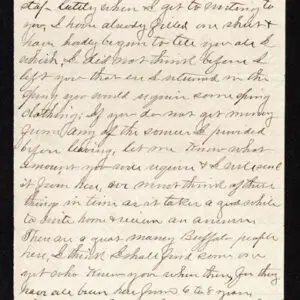 stop lately when I get to writing to
you, I have already filled one sheet &
have hardly begun to tell you all I
wish, I did not think before I
left you that as I returned in the
Spring you would require some spring
clothing; If you do not get money
from any of the sources I provided
before leaving, let me know what
amount you will require & I will send
it from here, we must think of these
things in time as it takes a good while
to write home & receive an answer.
There are a great many Buffalo people
here, I think I shall find some one
yet who knew you when there, for they
have all been here from 6 to 8 years